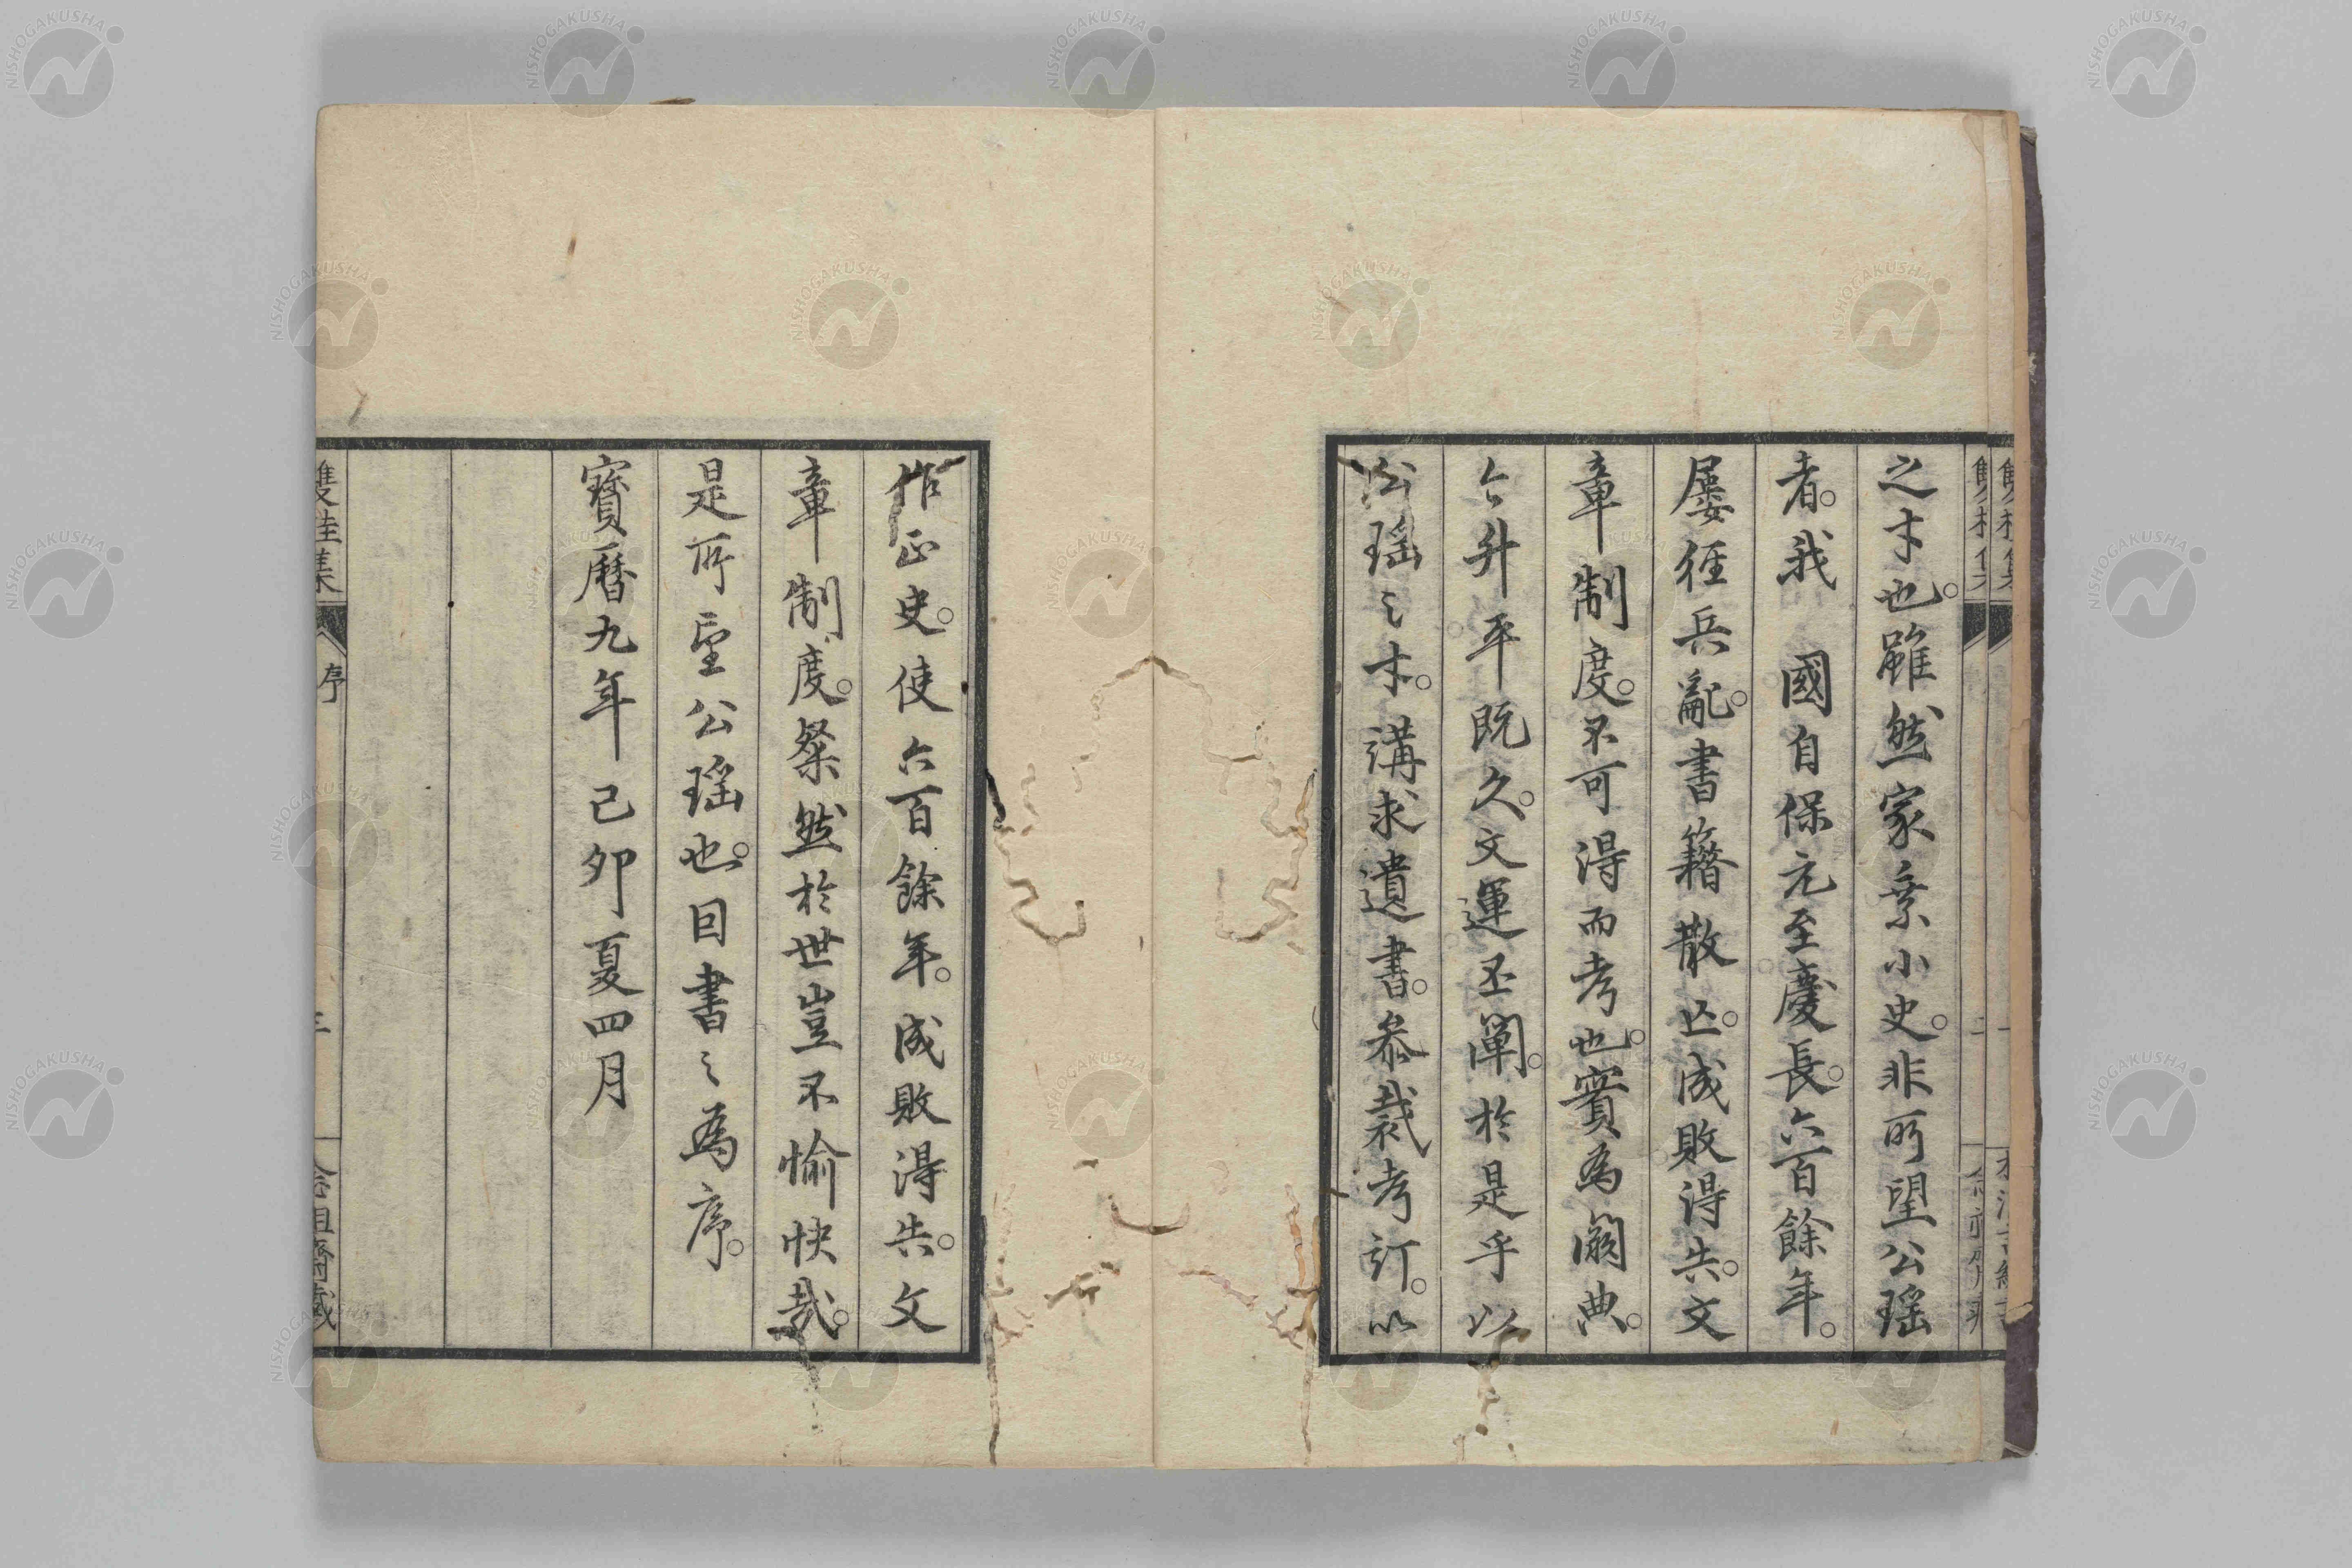 之才也。雖然家乘小史。非所望公瑶
者。我 國自保元至慶長。六百餘年。
屡経兵亂。書籍散亡。成敗得失。文
章制度。不可得而考也。實為闕典。
今升平既久。文運丕闡。於是乎以
公瑶之才。講求遺書。参裁考訂。以
作正史。使六百餘年。成敗得失。文
章制度。粲然於世豈不愉快哉。
是所望公瑶也。因書之為序。
寶暦九年己卯夏四月
雙桂集 序 三